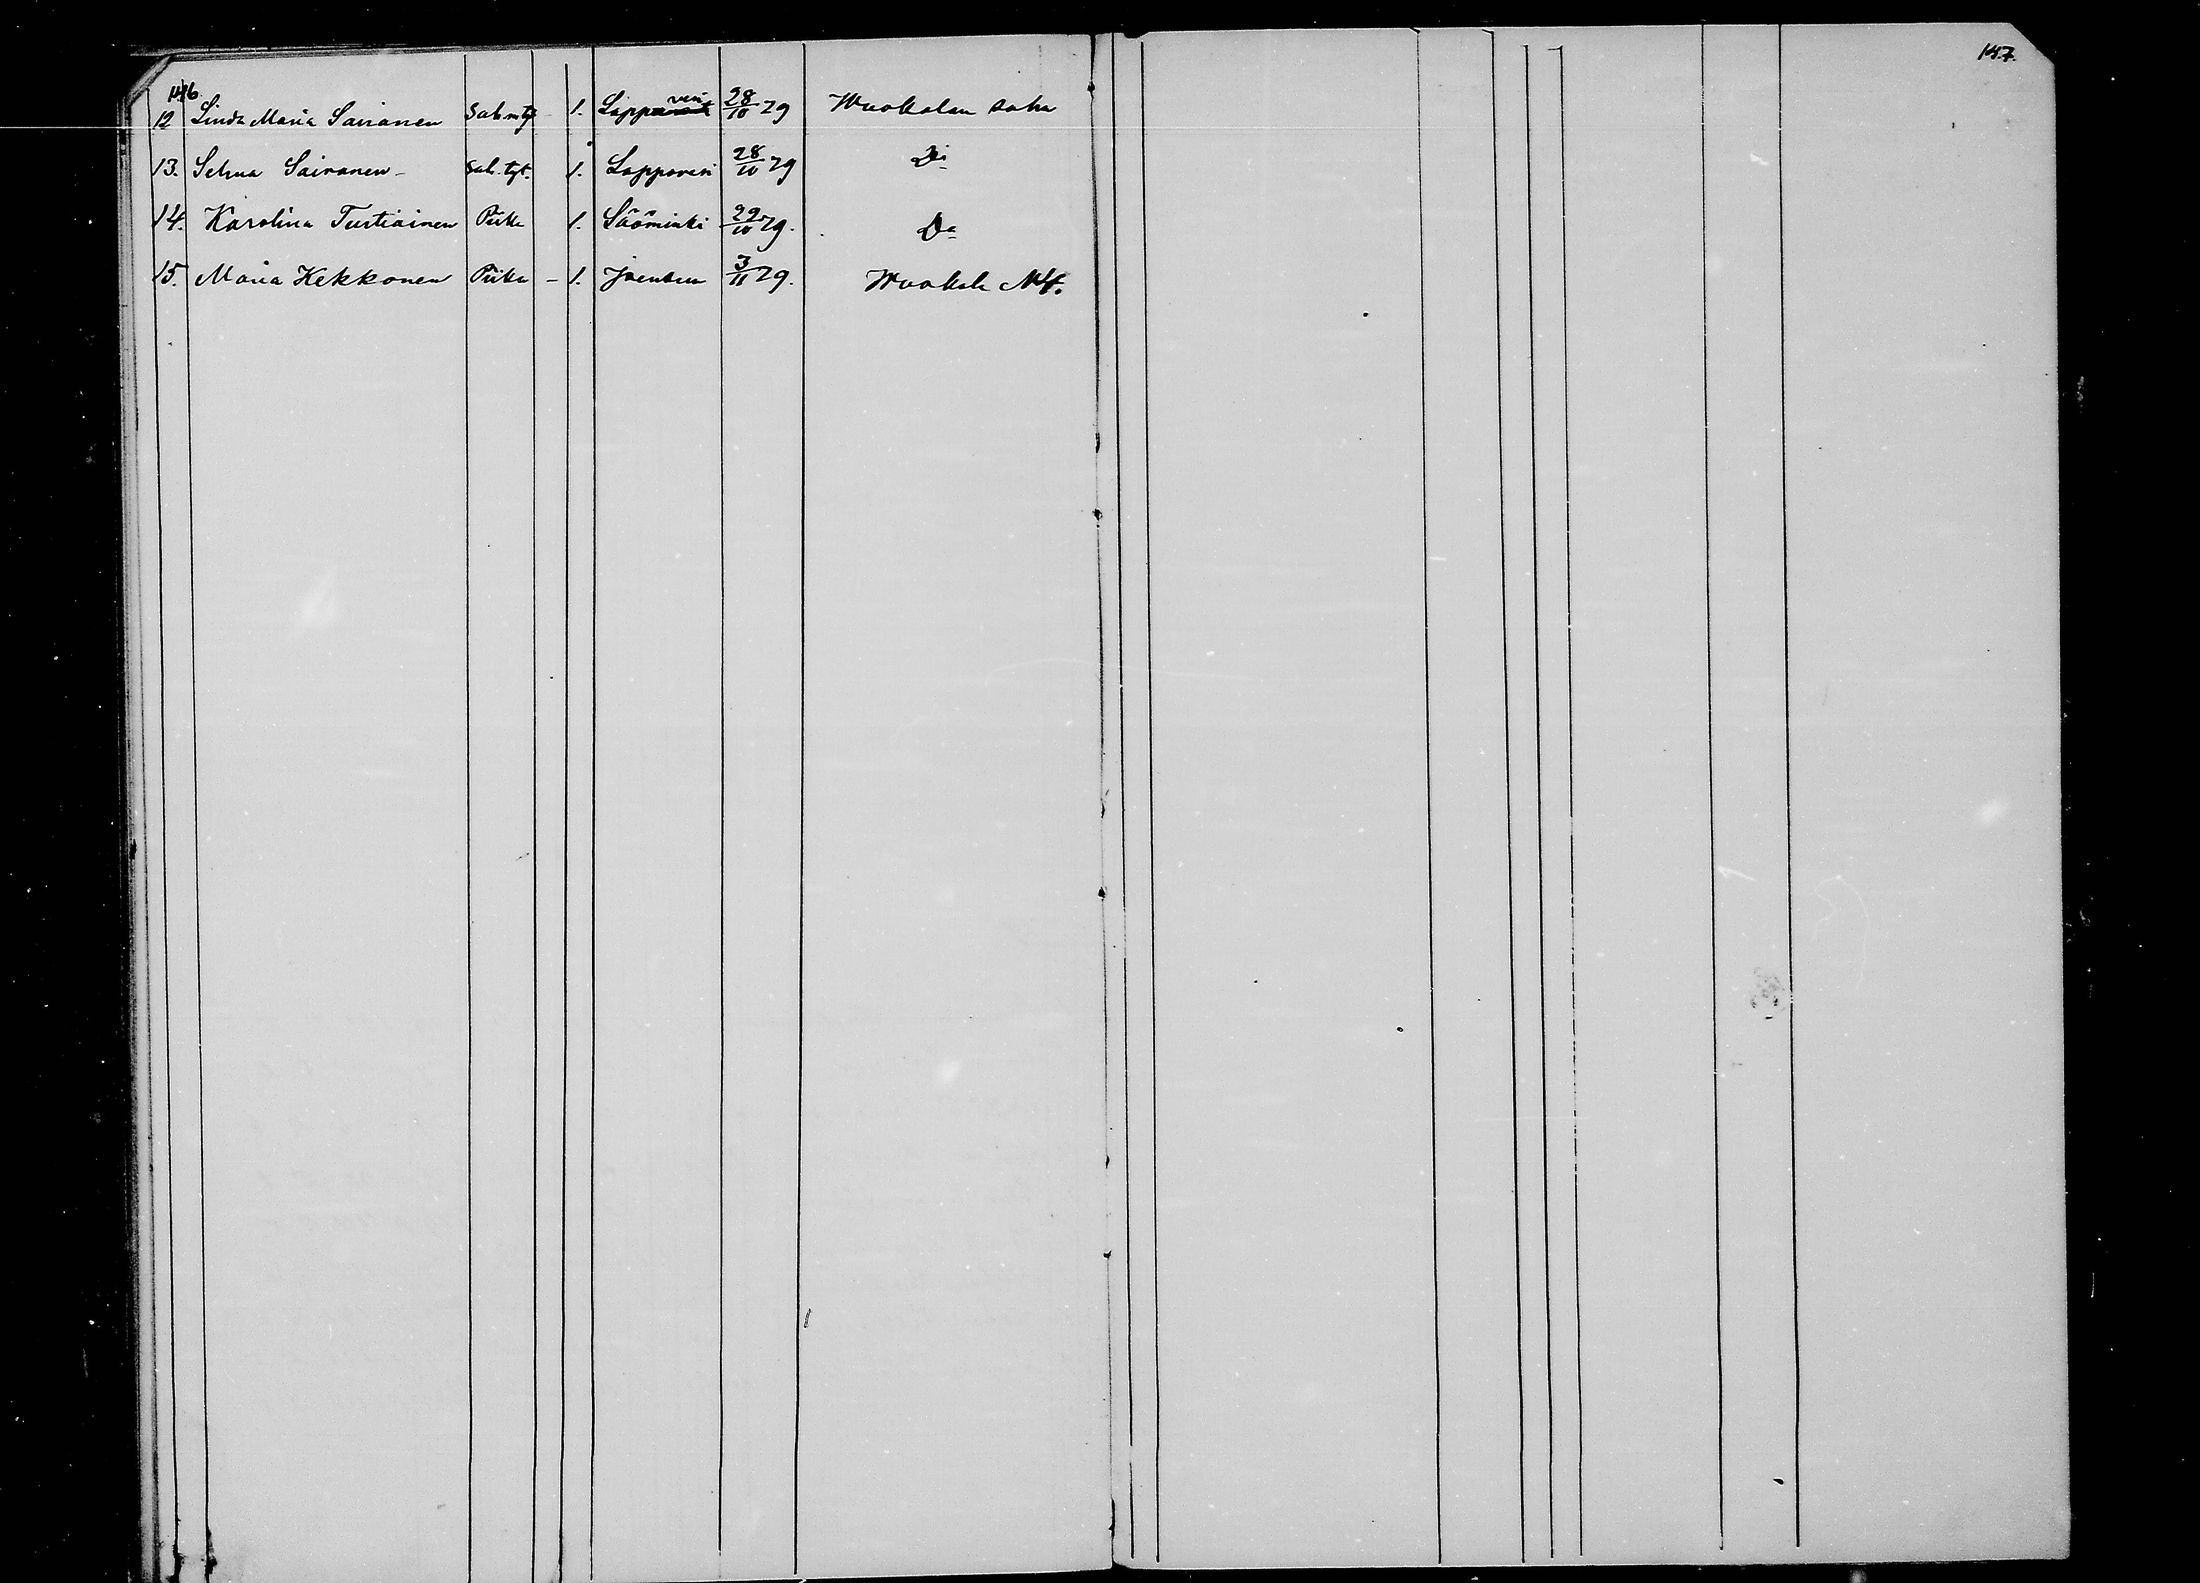 146.
147.
12 Linda Maria Sairanen Sah.mtj 1. Lappavesi 28/10 29 Wuokalan saha
13. Selma Sairanen - Sah. tyt. 1. Lappavesi 28/10 29 Do
14. Karolina Tustiainen Piika 1. Sääminki 29/10 29. Do
15. Maria Kekkonen Piika - 1. Joensuu 3/11 29. Wuokala N4.